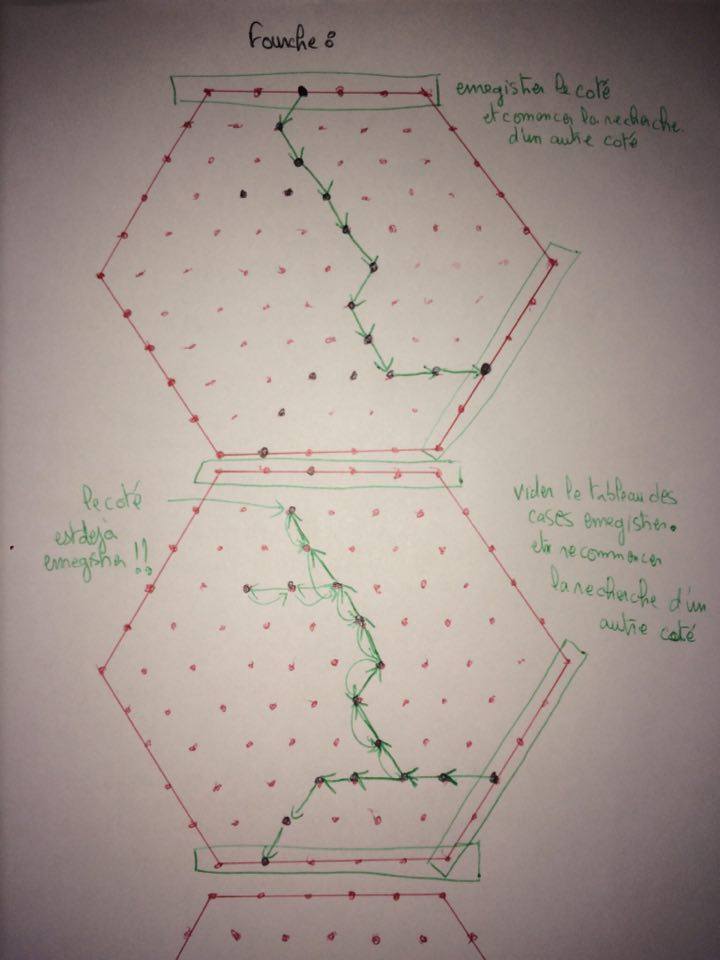 Fourche :
enregistrer le coté
et comencer la recherche
d'un autre coté
le coté
est deja
enregistrer !!
vider le tableau des
cases enregistrer.
et recommencer
la recherche d'un
autre coté